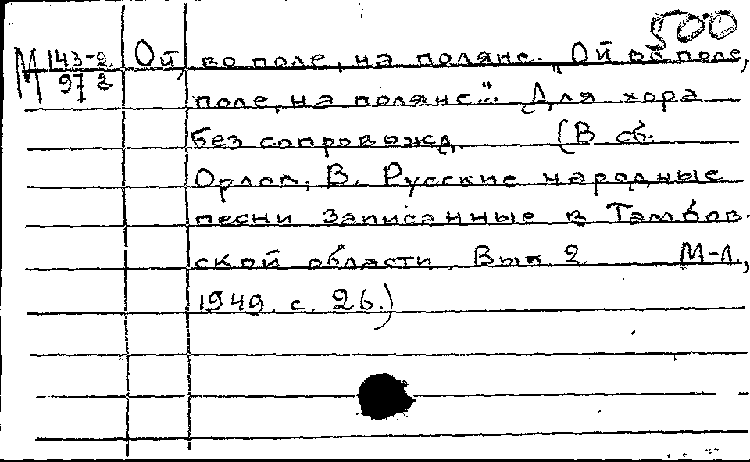 500
М 143-2 Ой, во поле, на поляне. "Ой во поле,
97 2 поле, на поляне.". Для хора
без сопровожд. (В сб.
Орлов, В. Русские народные
песни записанные в Тамбов-
ской области. Вып 2 М-Л,
1949. с. 26.)